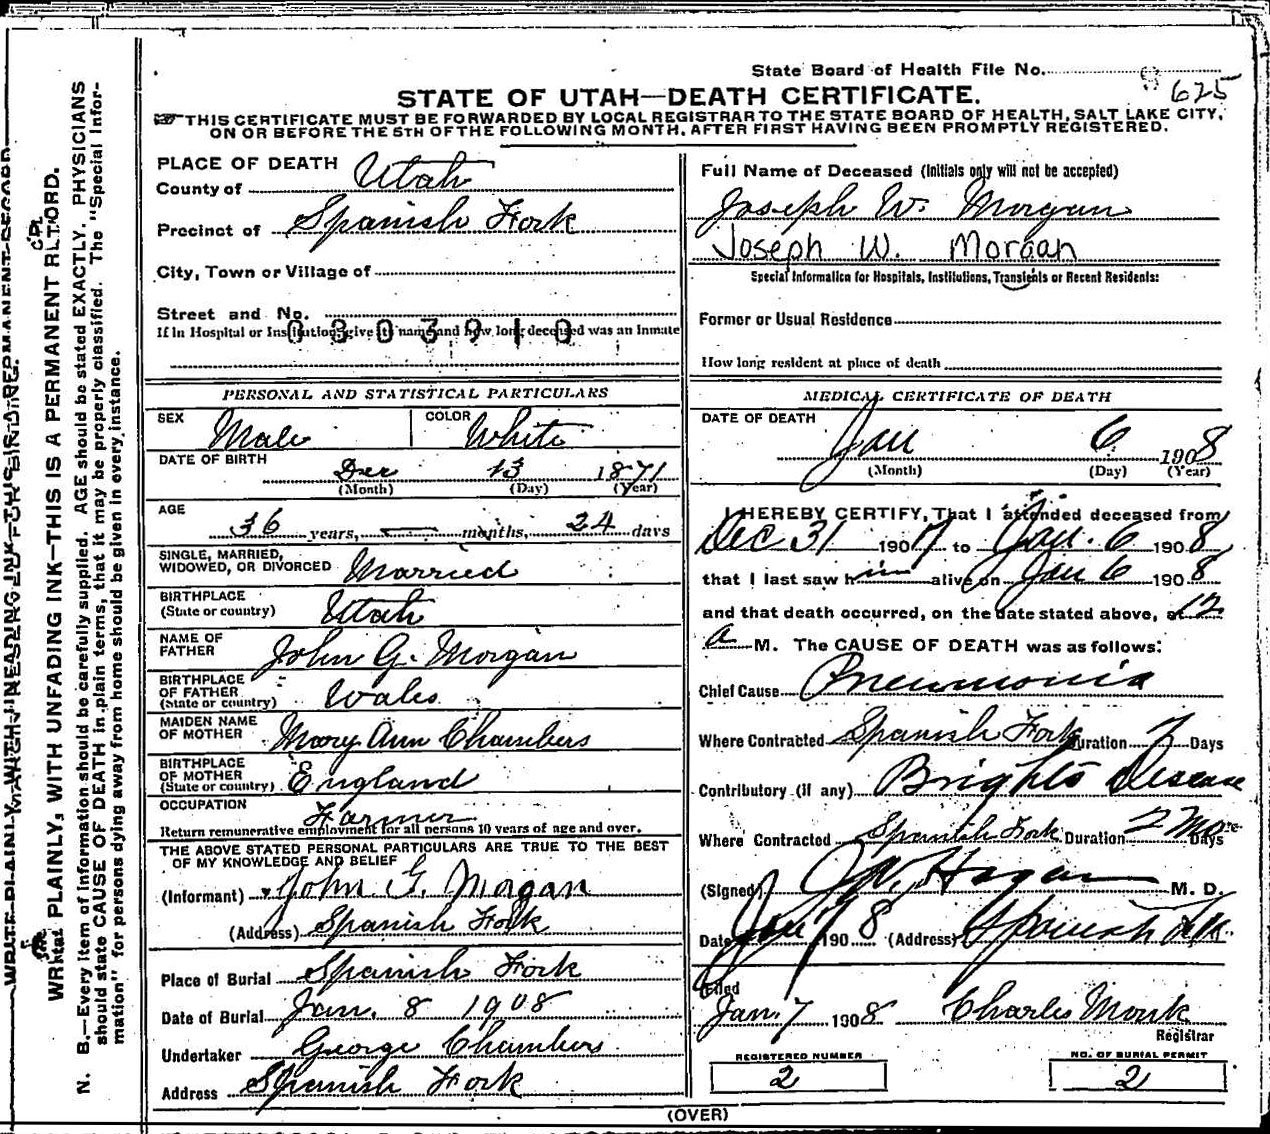 State Board of Health File No. 625
STATE OF UTAH—DEATH CERTIFICATE.
THIS CERTIFICATE MUST BE FORWARDED BY LOCAL REGISTRAR TO THE STATE BOARD OF HEALTH, SALT LAKE CITY,
ON OR BEFORE THE 5TH OF THE FOLLOWING MONTH, AFTER FIRST HAVING BEEN PROMPTLY REGISTERED.
PLACE OF DEATH
County of Utah
Precinct of Spanish Fork
City, Town or Village of
Street and No.
0803910
If in Hospital or Institution, give its name and how long deceased was an Inmate
Full Name of Deceased (Initials only will not be accepted)
Joseph W. Morgan
Joseph W. Morgan
Special Information for Hospitals, Institutions, Transients or Recent Residents:
Former or Usual Residence
How long resident at place of death
PERSONAL AND STATISTICAL PARTICULARS
SEX Male COLOR White
DATE OF BIRTH Dec 13 1871
(Month) (Day) (Year)
AGE 36 years, — months, 24 days
SINGLE, MARRIED,
WIDOWED, OR DIVORCED Married
BIRTHPLACE
(State or country) Utah
NAME OF
FATHER John G. Morgan
BIRTHPLACE
OF FATHER
(State or country) Wales
MAIDEN NAME
OF MOTHER Mary Ann Chambers
BIRTHPLACE
OF MOTHER
(State or country) England
OCCUPATION Farmer
Return remunerative employment for all persons 10 years of age and over.
THE ABOVE STATED PERSONAL PARTICULARS ARE TRUE TO THE BEST
OF MY KNOWLEDGE AND BELIEF
(Informant) John G. Morgan
(Address) Spanish Fork
Place of Burial Spanish Fork
Date of Burial Jan. 8 1908
Undertaker George Chambers
Address Spanish Fork
MEDICAL CERTIFICATE OF DEATH
DATE OF DEATH Jan 6 1908
(Month) (Day) (Year)
I HEREBY CERTIFY, That I attended deceased from
Dec 31 1907 to Jan. 6 1908
that I last saw him alive on Jan 6 1908
and that death occurred, on the date stated above, at 12
a M. The CAUSE OF DEATH was as follows:
Chief Cause Pneumonia
Where Contracted Spanish Fork Duration 7 Days
Contributory (if any) Brights Disease
Where Contracted Spanish Fork Duration 2 Mos Days
(Signed) J W. Hagan M. D.
Date Jan 7 1908 (Address) Spanish Fork
Filed
Jan. 7 1908 Charles Monk
Registrar
REGISTERED NUMBER
2
NO. OF BURIAL PERMIT
2
(OVER)
WRITE PLAINLY, WITH UNFADING INK—THIS IS A PERMANENT RECORD.
N. B.—Every item of information should be carefully supplied. AGE should be stated EXACTLY. PHYSICIANS
should state CAUSE OF DEATH in plain terms, that it may be properly classified. The "Special Infor-
mation" for persons dying away from home should be given in every instance.